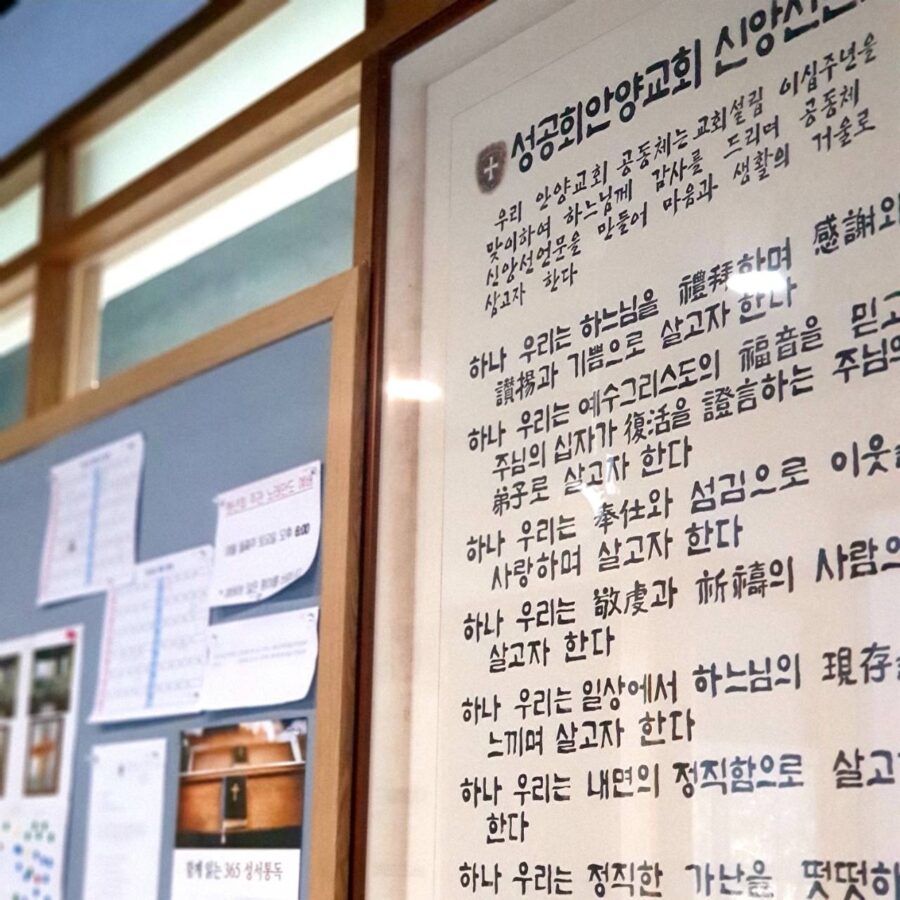 성공회안양교회 신앙선언
우리 안양교회 공동체는 교회설립 이십주년을
맞이하여 하느님께 감사를 드리며 공동체
신앙선언문을 만들어 마음과 생활의 거울로
삼고자 한다
하나 우리는 하느님을 禮拜하며 感謝와
讚揚과 기쁨으로 살고자 한다
하나 우리는 예수그리스도의 福音을 믿고
주님의 십자가 復活을 證言하는 주님의
弟子로 살고자 한다
하나 우리는 奉仕와 섬김으로 이웃을
사랑하며 살고자 한다
하나 우리는 敬虔과 祈禱의 사람으
살고자 한다
하나 우리는 일상에서 하느님의 現存을
느끼며 살고자 한다
하나 우리는 내면의 정직함으로 살고
한다
하나 우리는 정직한 가난을 떳떳하
함께 읽는 365 성서통독